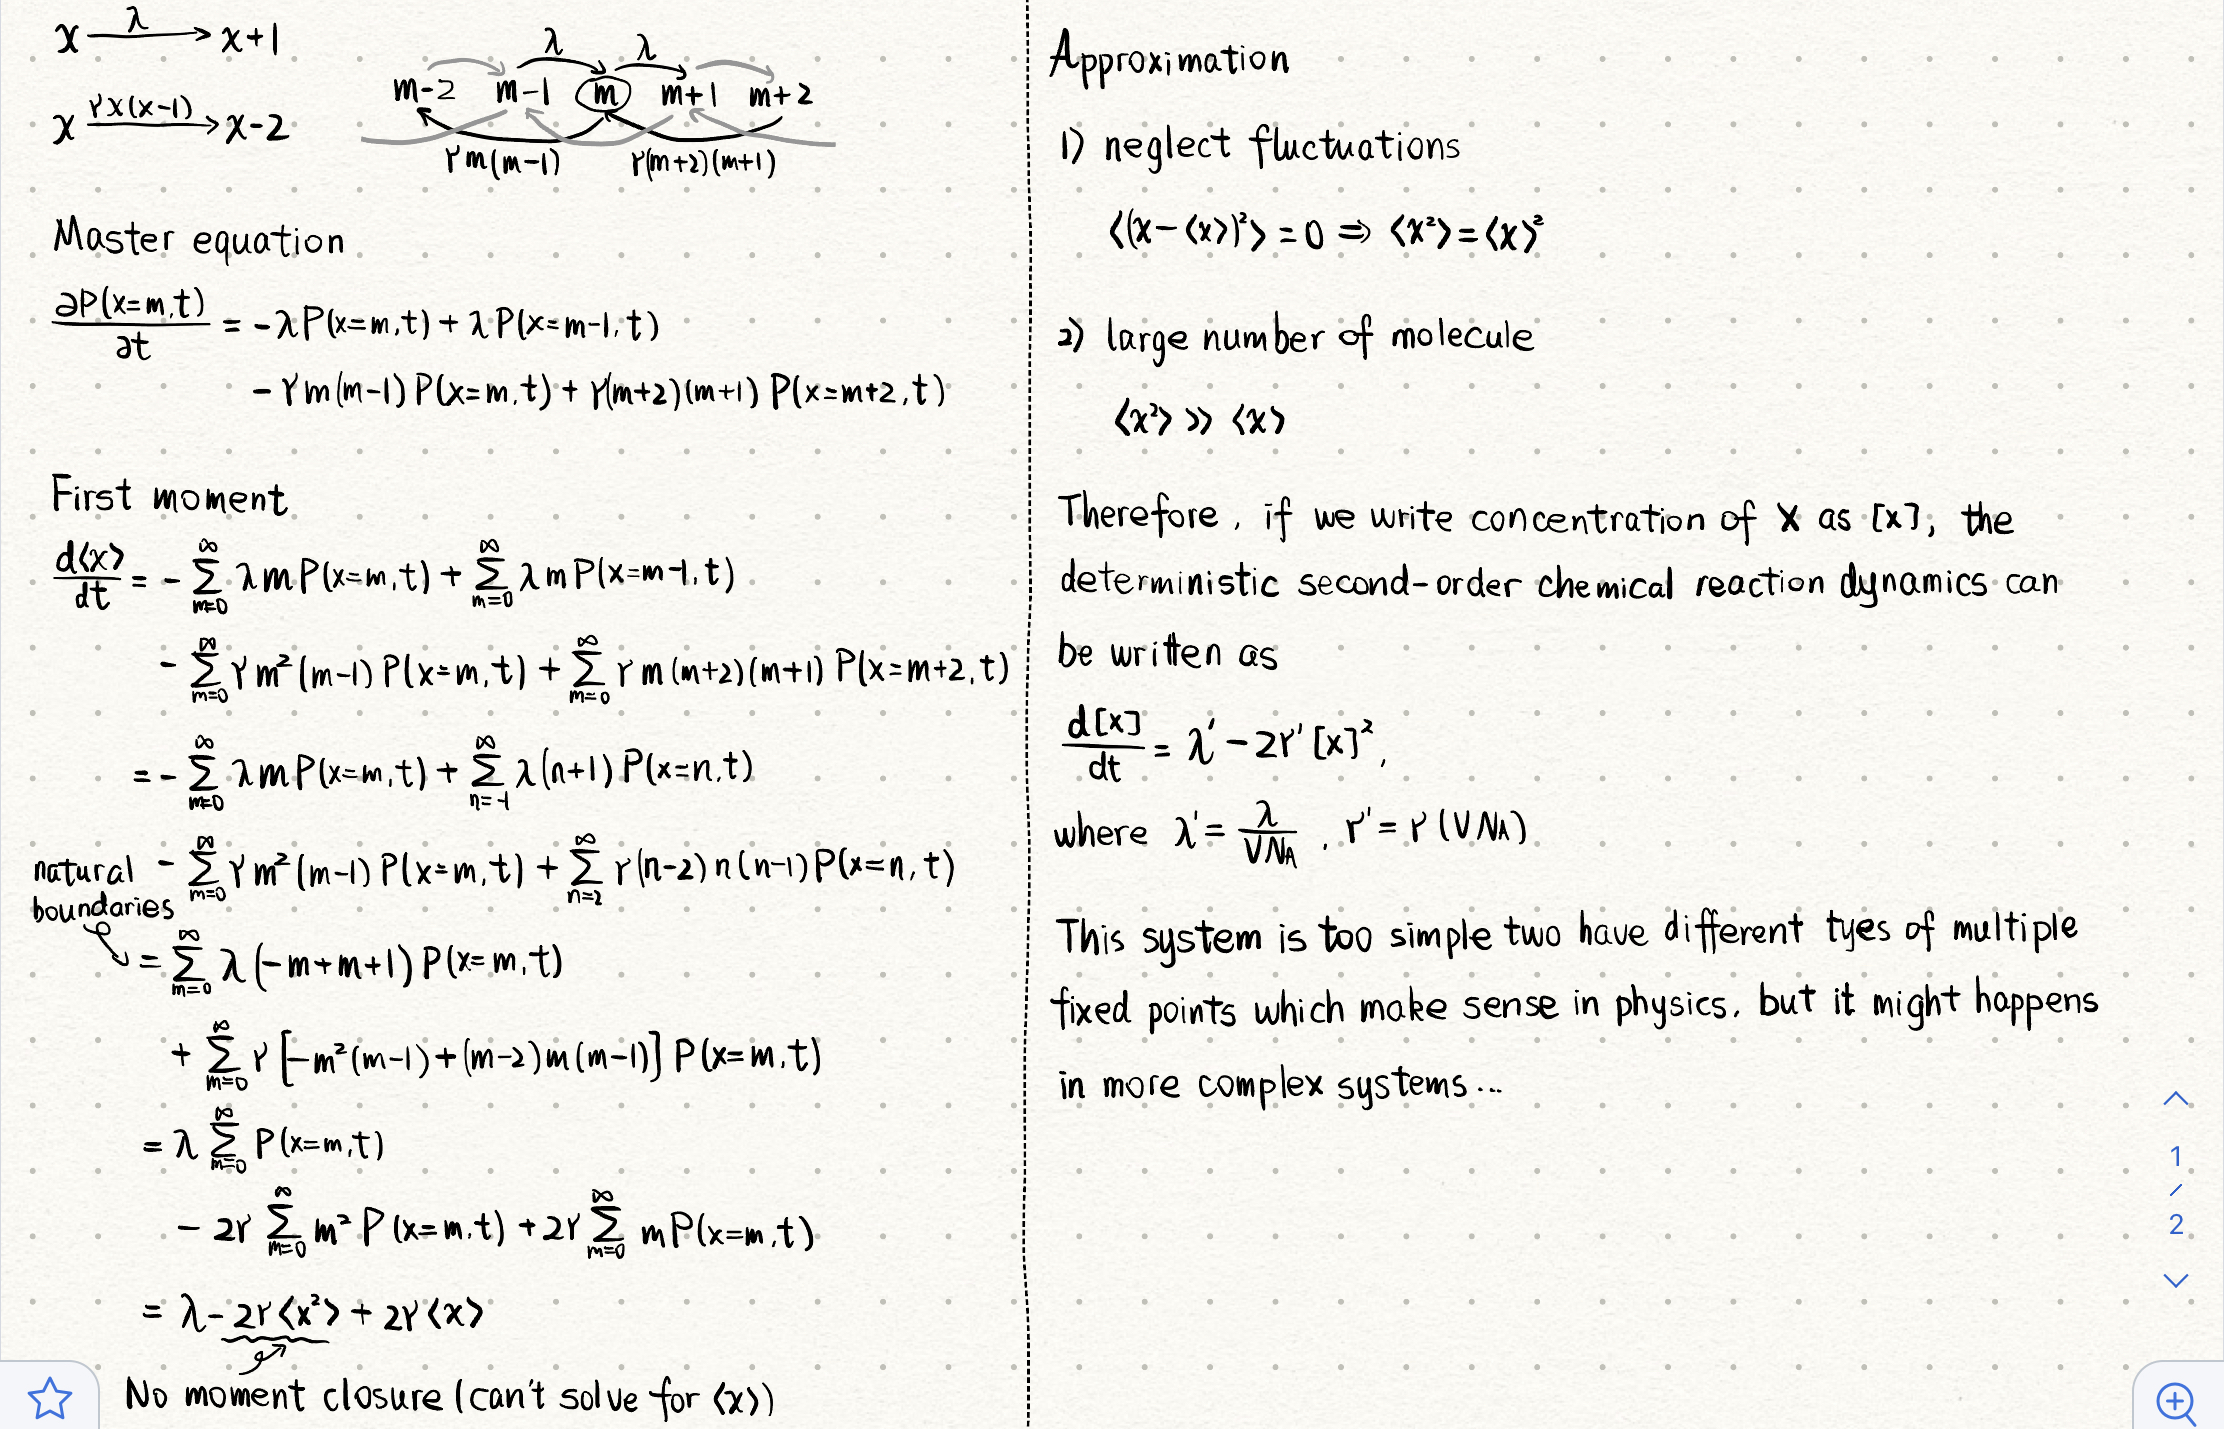 x —λ→ x+1
x —γx(x-1)→ x-2
λ λ
m-2 m-1 m m+1 m+2
γm(m-1) γ(m+2)(m+1)
Master equation
∂P(x=m,t)/∂t = -λP(x=m,t) + λP(x=m-1,t)
- γm(m-1)P(x=m,t) + γ(m+2)(m+1)P(x=m+2,t)
First moment
d⟨x⟩/dt = - ∑_{m=0}^{∞} λmP(x=m,t) + ∑_{m=0}^{∞} λmP(x=m-1,t)
- ∑_{m=0}^{∞} γm²(m-1)P(x=m,t) + ∑_{m=0}^{∞} γm(m+2)(m+1)P(x=m+2,t)
= - ∑_{m=0}^{∞} λmP(x=m,t) + ∑_{n=-1}^{∞} λ(n+1)P(x=n,t)
- ∑_{m=0}^{∞} γm²(m-1)P(x=m,t) + ∑_{n=2}^{∞} γ(n-2)n(n-1)P(x=n,t)
natural
boundaries
= ∑_{m=0}^{∞} λ(-m+m+1)P(x=m,t)
+ ∑_{m=0}^{∞} γ[-m²(m-1)+(m-2)m(m-1)]P(x=m,t)
= λ ∑_{m=0}^{∞} P(x=m,t)
- 2γ ∑_{m=0}^{∞} m²P(x=m,t) + 2γ ∑_{m=0}^{∞} mP(x=m,t)
= λ - 2γ⟨x²⟩ + 2γ⟨x⟩
No moment closure (can't solve for ⟨x⟩)
Approximation
1) neglect fluctuations
⟨(x-⟨x⟩)²⟩ = 0 ⇒ ⟨x²⟩=⟨x⟩²
2) large number of molecule
⟨x²⟩ >> ⟨x⟩
Therefore, if we write concentration of X as [x], the
deterministic second-order chemical reaction dynamics can
be written as
d[x]/dt = λ' - 2γ'[x]²,
where λ' = λ/VN_A, γ' = γ(VN_A)
This system is too simple two have different tyes of multiple
fixed points which make sense in physics, but it might happens
in more complex systems...
1
/
2